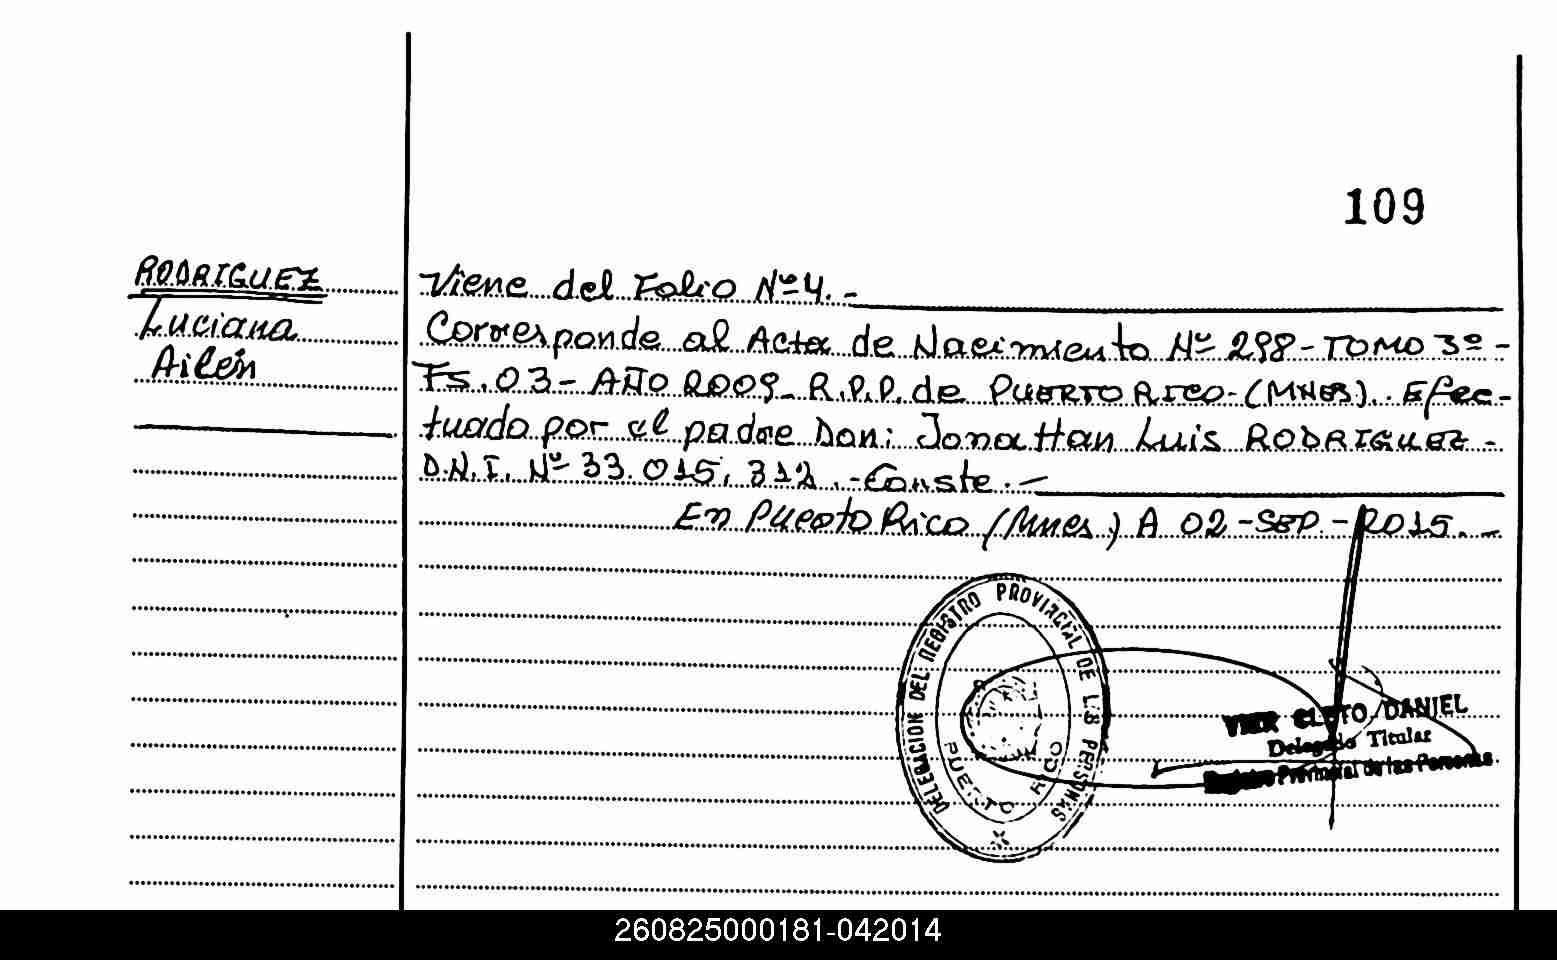 109
RODRIGUEZ
Luciana
Ailén
Viene del Folio Nº 4.-
Corresponde al Acta de Nacimiento Nº 298 - TOMO 3º -
Fs. 03 - AÑO 2009 - R.P.P. de PUERTO RICO - (MNES). Efec-
tuado por el padre Don: Jonathan Luis RODRIGUEZ -
D.N.I. Nº 33.015.312.- Conste.-
En Puerto Rico (Mnes) A 02 - SEP. - 2015.-
DELEGACION DEL REGISTRO PROVINCIAL DE LAS PERSONAS
PUERTO RICO
CLETO DANIEL
Delegado Titular
Registro Provincial de las Personas
260825000181-042014